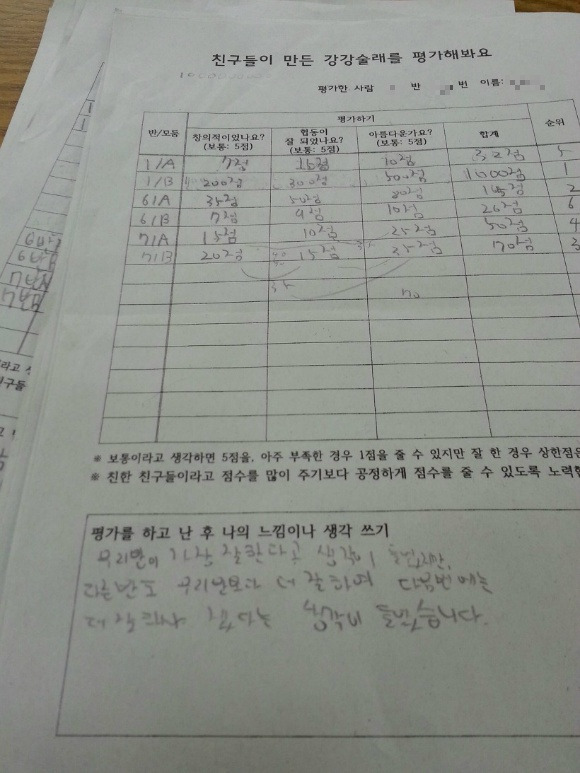 친구들이 만든 강강술래를 평가해봐요
평가한 사람 반 번 이름:
반/모둠 평가하기 순위
창의적이있나요? (보통: 5점) 협동이 잘 되었나요? (보통: 5점) 아름다운가요? (보통: 5점) 합계
1/A 7점 10점 32점 5
1/B 200점 300점 500점 1000점 1
6/A 35점 50점 2
6/B 7점 9점 10점 26점 6
7/A 15점 10점 25점 50점 4
7/B 20점 15점 35점 70점 3
70
6반
6반
7반
7반
※ 보통이라고 생각하면 5점을, 아주 부족한 경우 1점을 줄 수 있지만 잘 한 경우 상한점은
※ 친한 친구들이라고 점수를 많이 주기보다 공정하게 점수를 줄 수 있도록 노력
평가를 하고 난 후 나의 느낌이나 생각 쓰기
우리반이 가장 잘한다고 생각이 들었지만,
다른반도 우리반보다 더 잘하여 다음번에는
더 잘해야 겠다는 생각이 들었습니다.